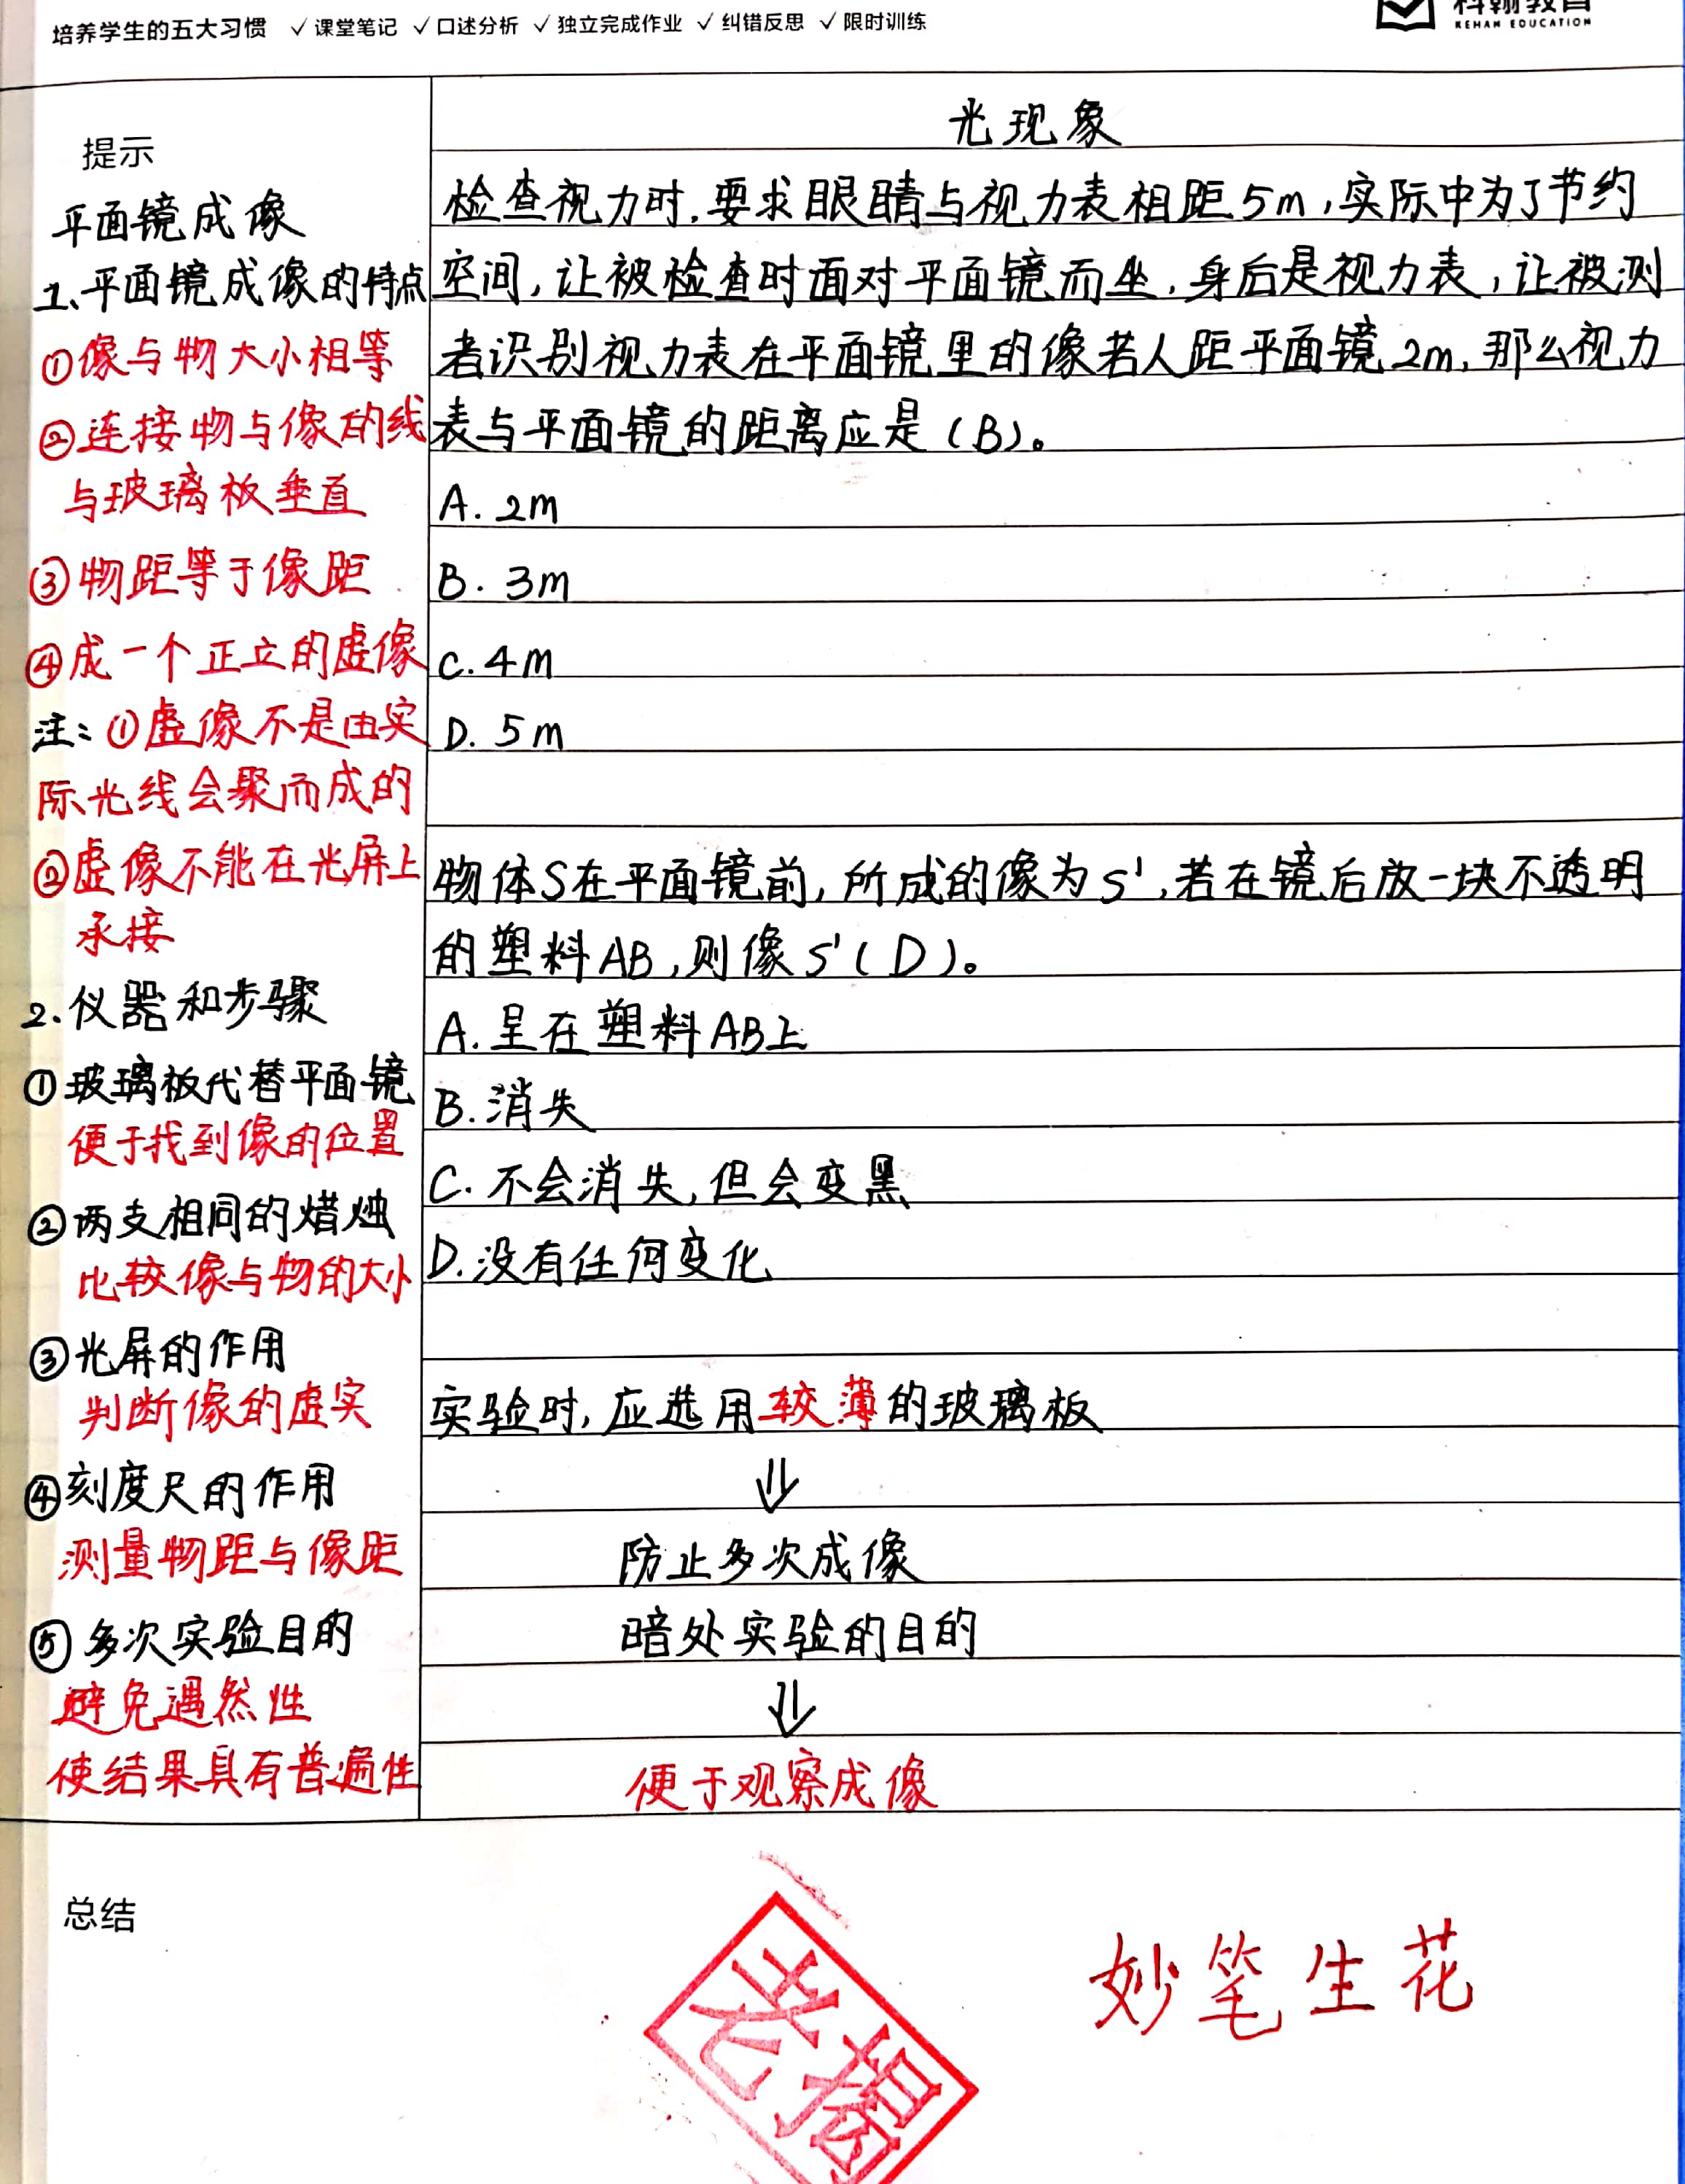 培养学生的五大习惯 ✓课堂笔记 ✓口述分析 ✓独立完成作业 ✓纠错反思 ✓限时训练
科翰教育
KEHAN EDUCATION
提示
平面镜成像
1.平面镜成像的特点
①像与物大小相等
②连接物与像的线
与玻璃板垂直
③物距等于像距
④成一个正立的虚像
注:①虚像不是由实
际光线会聚而成的
②虚像不能在光屏上
承接
2.仪器和步骤
①玻璃板代替平面镜
便于找到像的位置
②两支相同的蜡烛
比较像与物的大小
③光屏的作用
判断像的虚实
④刻度尺的作用
测量物距与像距
⑤多次实验目的
避免遇然性
使结果具有普遍性
光现象
检查视力时,要求眼睛与视力表相距5m,实际中为了节约
空间,让被检查时面对平面镜而坐,身后是视力表,让被测
者识别视力表在平面镜里的像若人距平面镜2m,那么视力
表与平面镜的距离应是(B)。
A. 2m
B. 3m
C. 4m
D. 5m
物体S在平面镜前,所成的像为S',若在镜后放一块不透明
的塑料AB,则像S'(D)。
A.呈在塑料AB上
B.消失
C.不会消失,但会变黑
D.没有任何变化
实验时,应选用较薄的玻璃板
⇓
防止多次成像
暗处实验的目的
⇓
便于观察成像
总结
妙笔生花